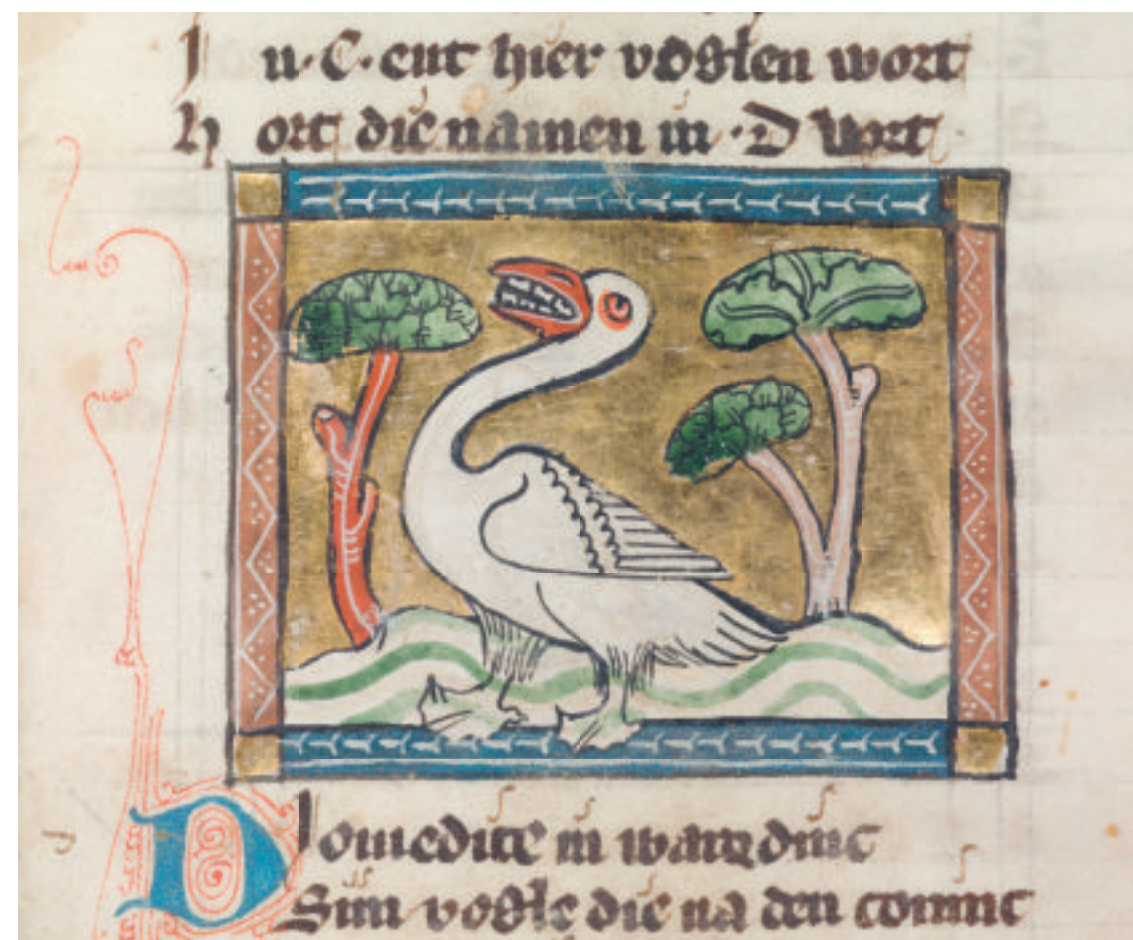 I n . C . ent hier voghlen wort
H ort die namen in . D . vort
Diomedice in waer dinc
Siin voghle die na den coninc